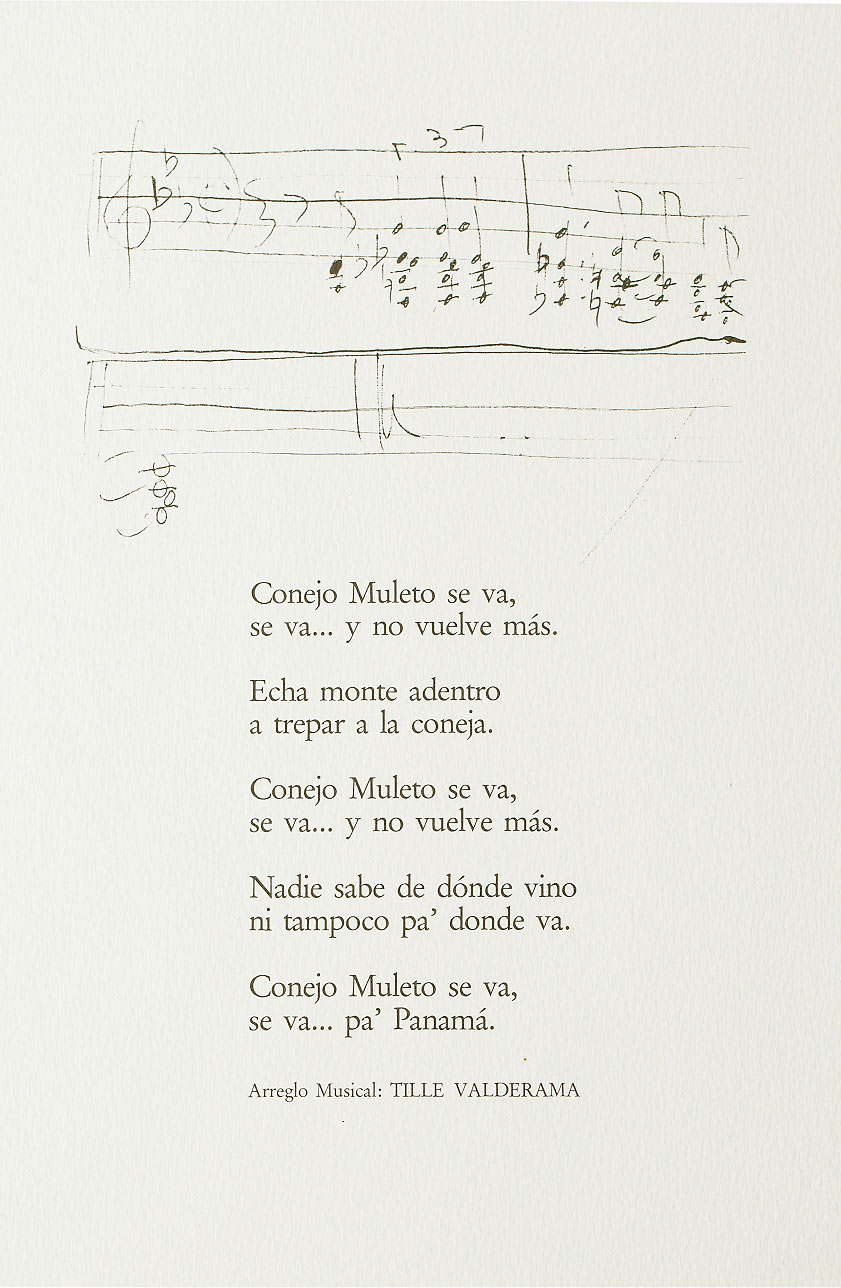 3
Conejo Muleto se va,
se va... y no vuelve más.
Echa monte adentro
a trepar a la coneja.
Conejo Muleto se va,
se va... y no vuelve más.
Nadie sabe de dónde vino
ni tampoco pa’ donde va.
Conejo Muleto se va,
se va... pa’ Panamá.
Arreglo Musical: TILLE VALDERAMA